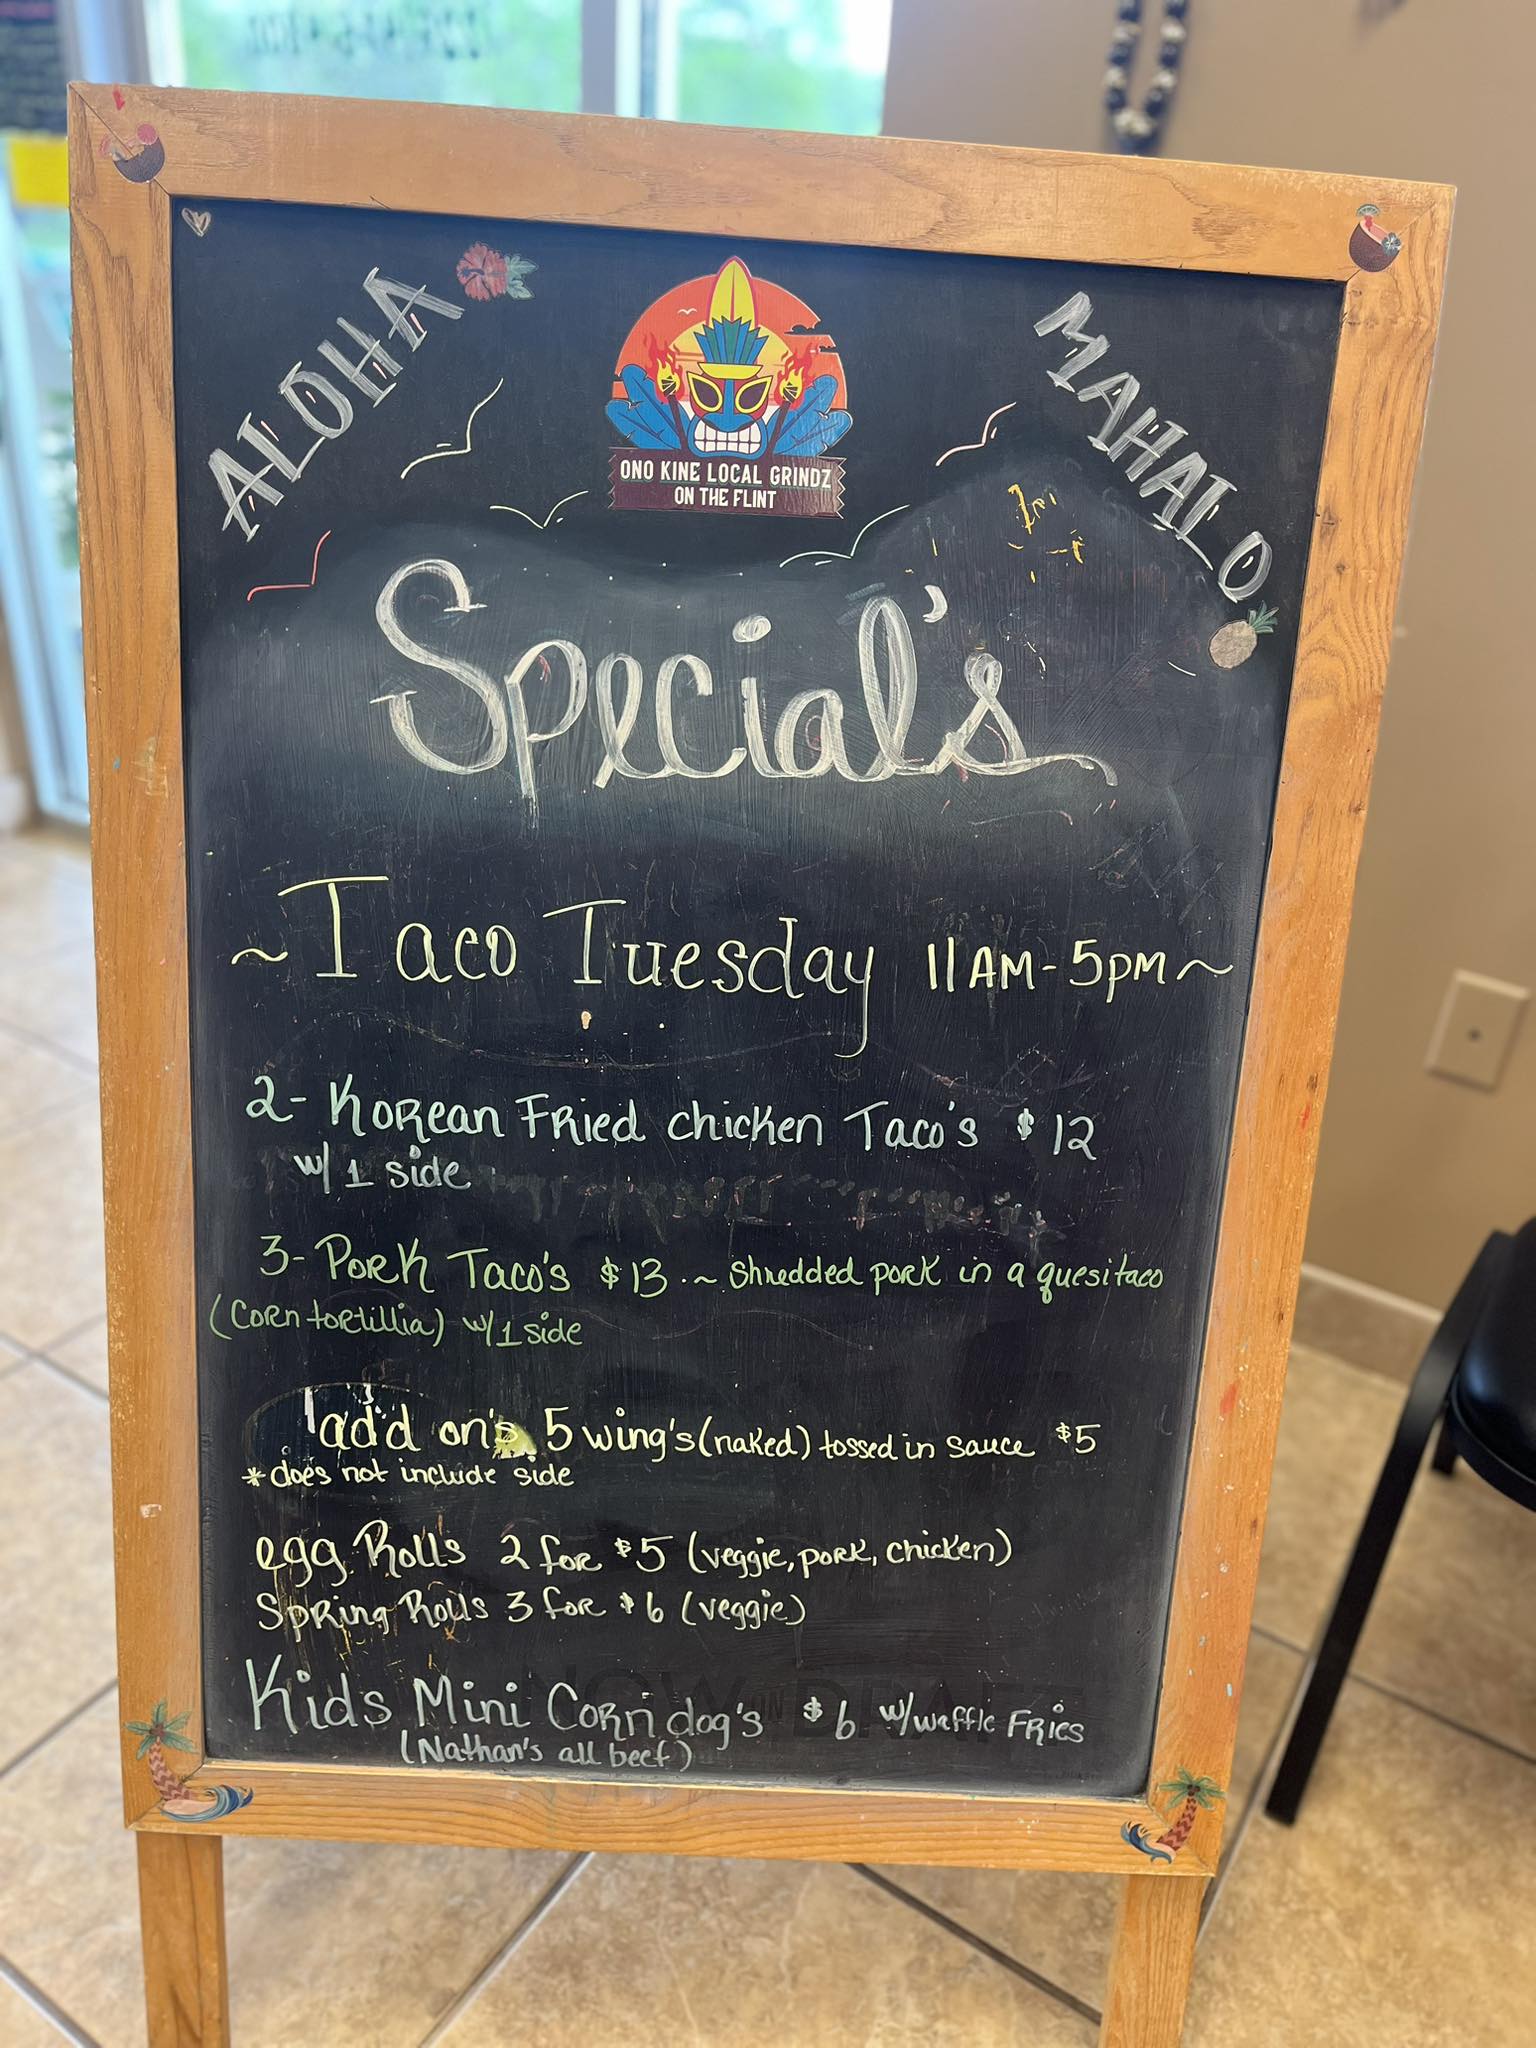 ALOHA
MAHALO
ONO KINE LOCAL GRINDZ
ON THE FLINT
Special's
~Taco Tuesday 11AM-5PM~
2- Korean Fried chicken Taco's $12
w/1 side
3- Pork Taco's $13 .~ Shredded pork in a quesitaco
(Corn tortillia) w/1 side
add on's 5 wing's (naked) tossed in sauce $5
*does not include side
egg Rolls 2 for $5 (veggie, pork, chicken)
Spring Rolls 3 for $6 (veggie)
Kids Mini Corn dog's $6 w/waffle Fries
(Nathan's all beef)